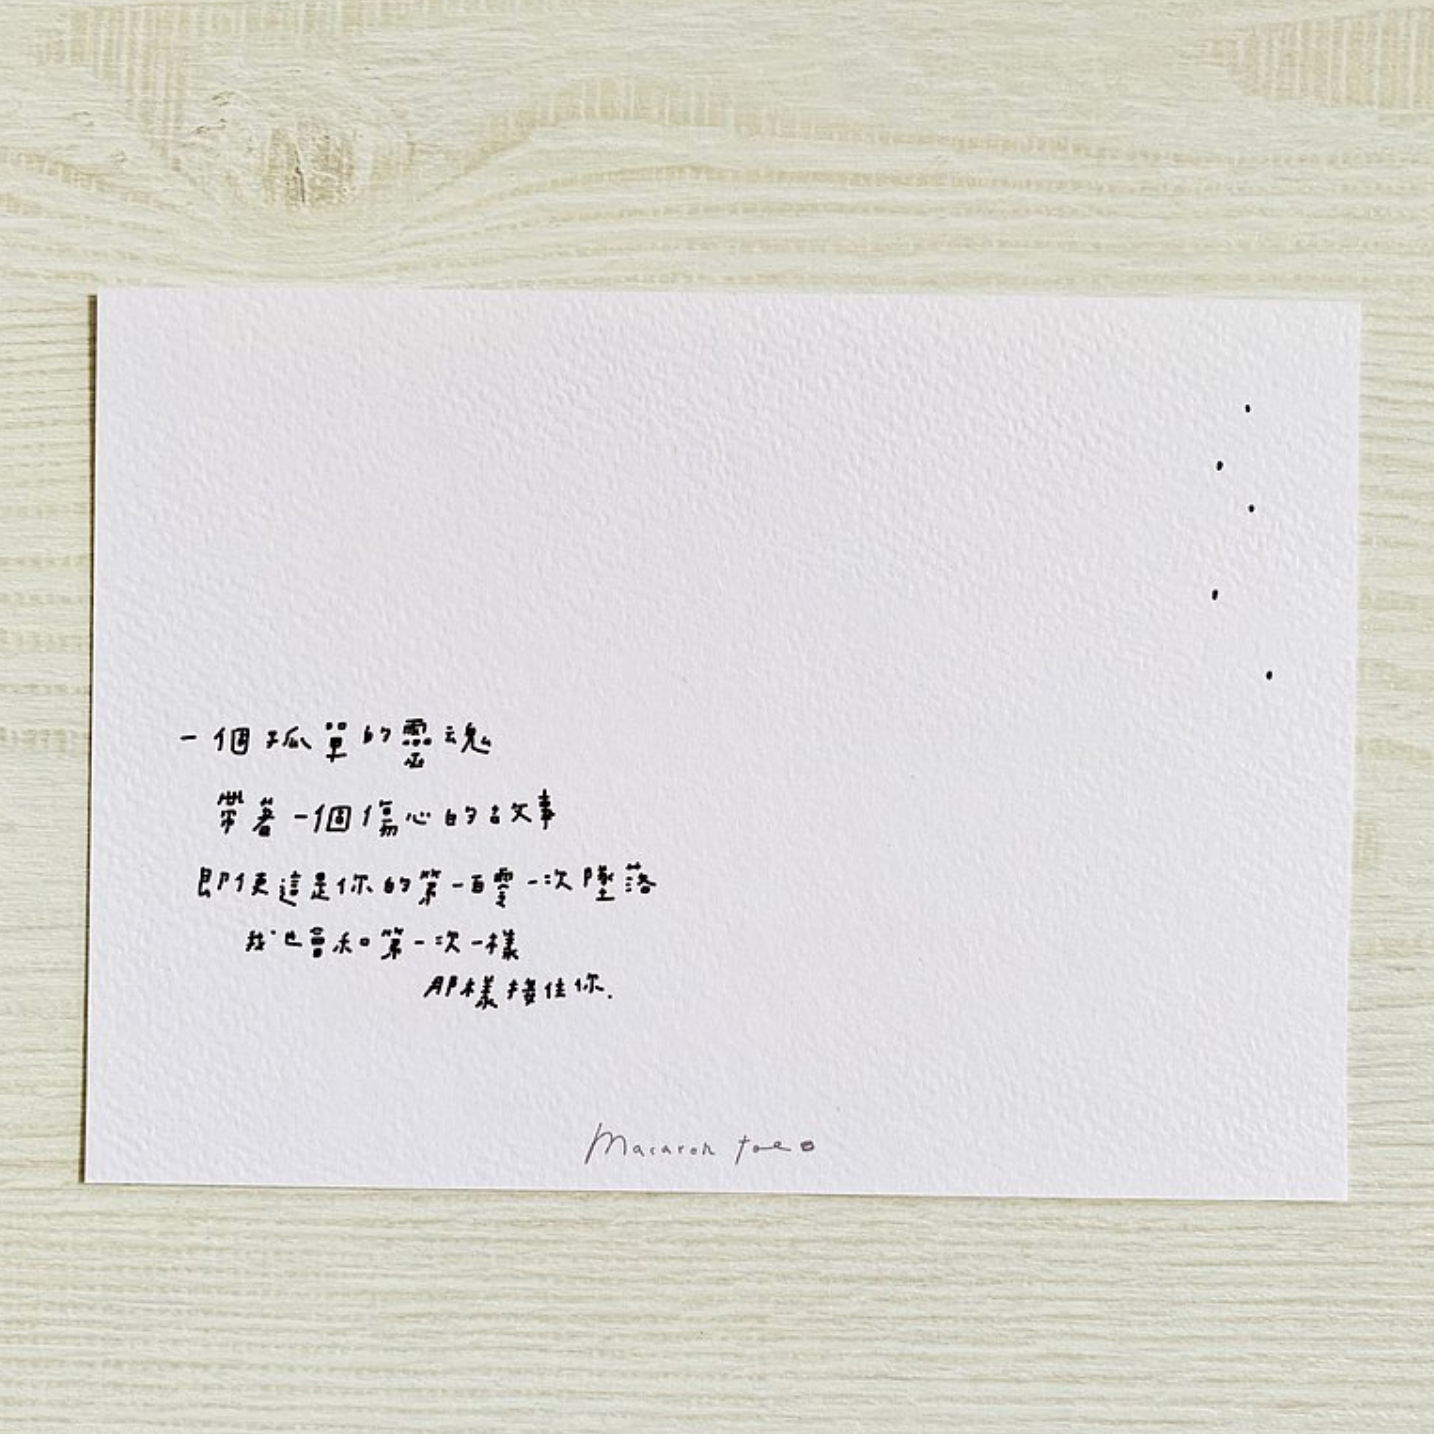 一個孤單的靈魂
帶著一個傷心的故事
即使這是你的第一百零一次墜落
我也會和第一次一樣
那樣接住你.
Macaron toe